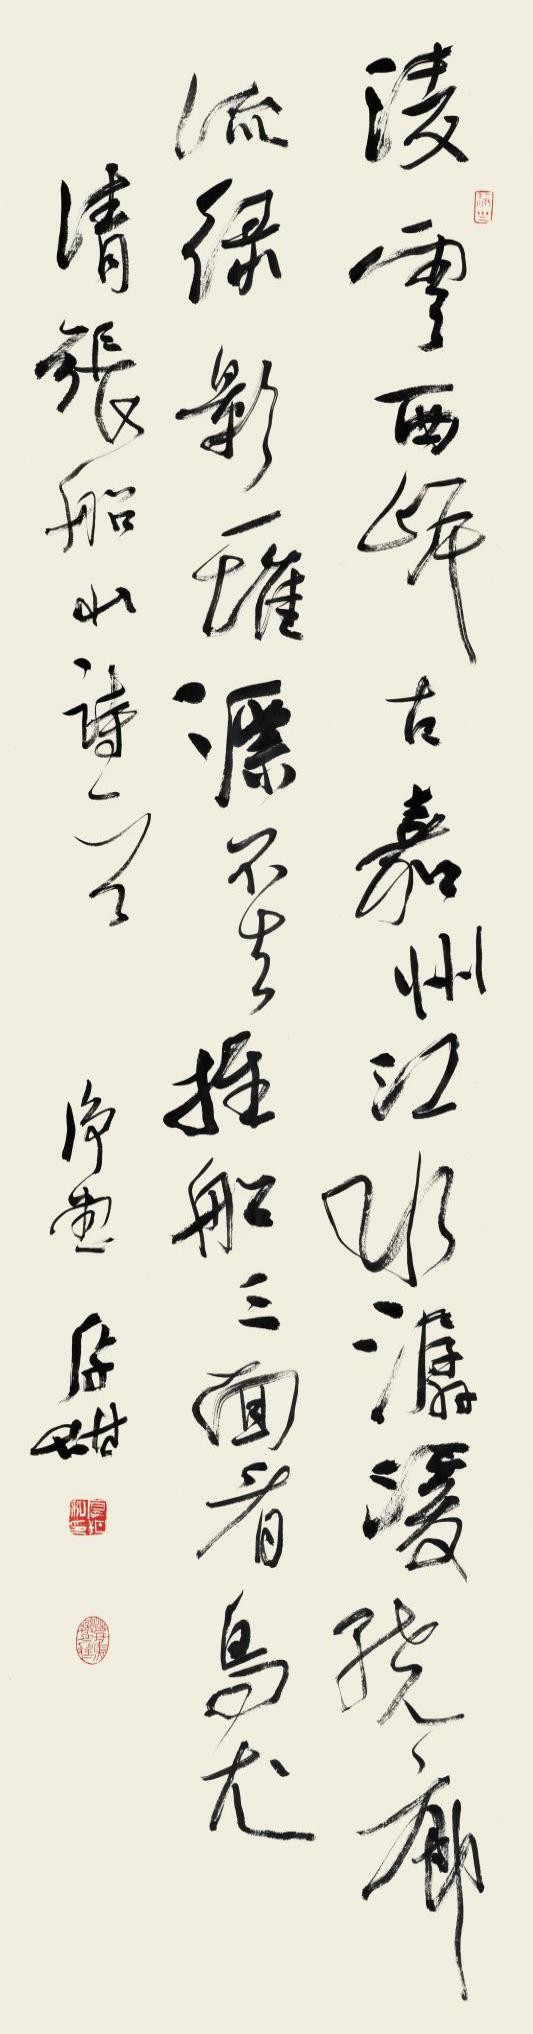 凌云西岸古嘉州江水潺湲绕郭
流绿影一堆漂不去推船三面看乌尤
清张船山诗一首
净堂